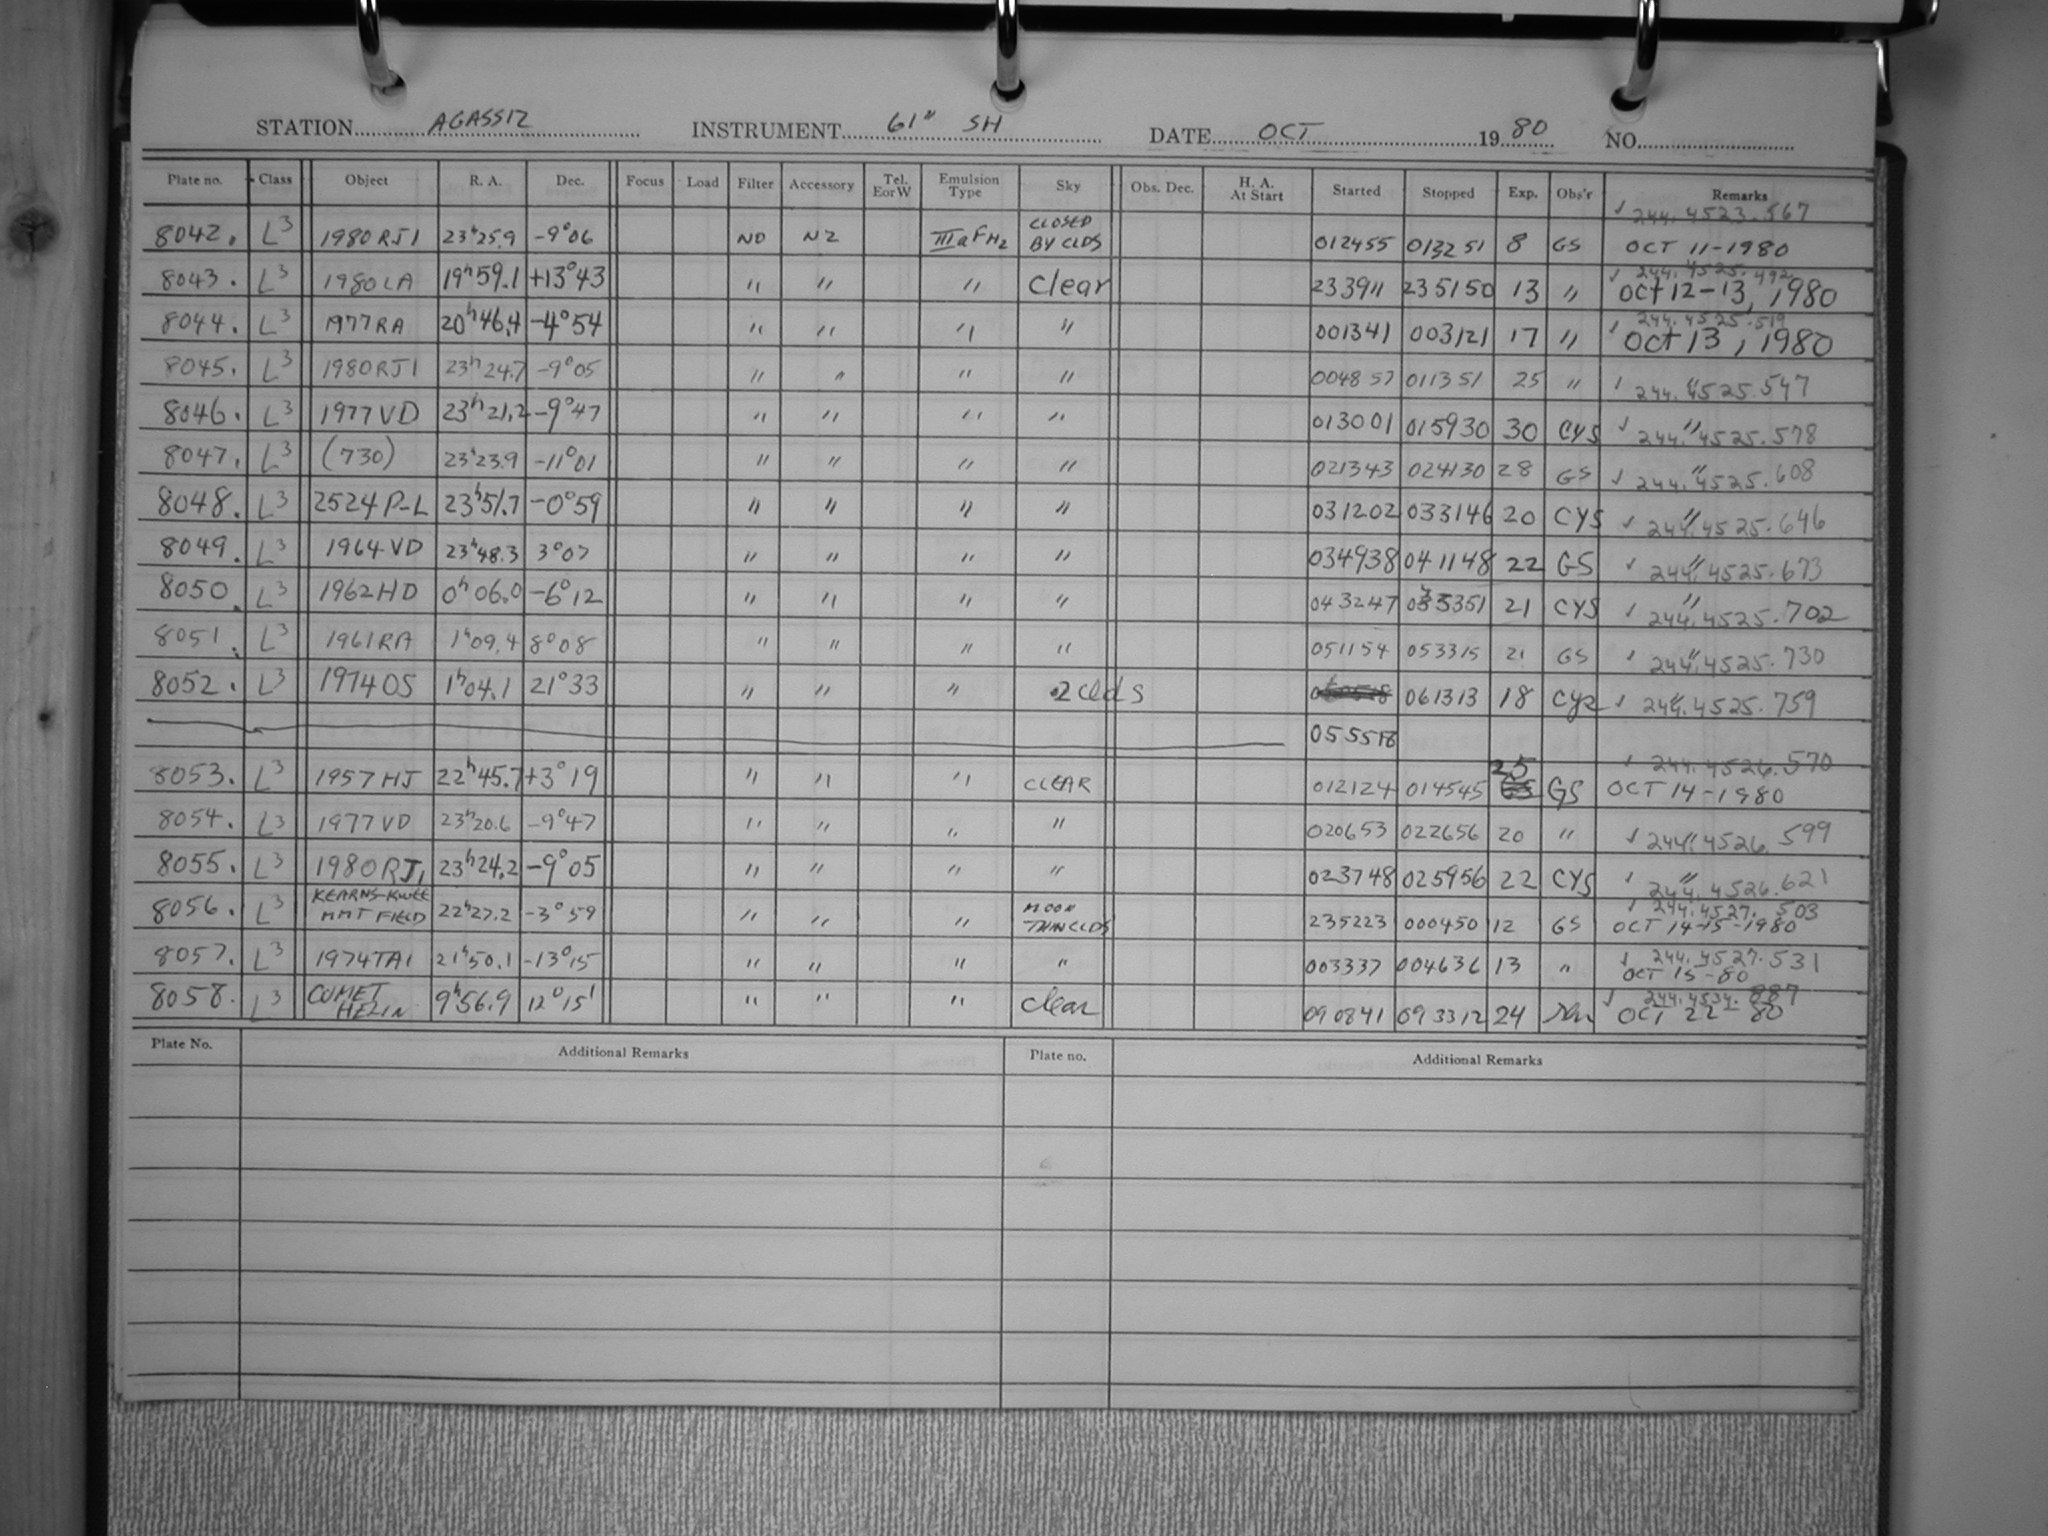 STATION AGASSIZ INSTRUMENT 61" SH DATE OCT 1980 NO.
Plate no. Class Object R. A. Dec. Focus Load Filter Accessory Tel. E or W Emulsion Type Sky Obs. Dec. H. A. At Start Started Stopped Exp. Obs'r Remarks
8042. L3 1980 RJ1 23h25.9 -9°06 NO N2 IIIaF H2 CLOSED BY CLDS 012455 013251 8 GS √ 244.4523.567 OCT 11-1980
8043. L3 1980 LA 19h59.1 +13°43 " " " Clear 233911 235150 13 " √ 244.4525.492 Oct 12-13, 1980
8044. L3 1977 RA 20h46.4 -4°54 " " " " 001341 003121 17 " √ 244.4525.519 Oct 13, 1980
8045. L3 1980 RJ1 23h24.7 -9°05 " " " " 004857 011351 25 " √ " 244.4525.547
8046. L3 1977 VD 23h21.2 -9°47 " " " " 013001 015930 30 CYS √ " 244.4525.578
8047. L3 (730) 23h23.9 -11°01 " " " " 021343 024130 28 GS √ " 244.4525.608
8048. L3 2524 P-L 23h51.7 -0°59 " " " " 031202 033146 20 CYS √ " 244.4525.646
8049. L3 1964 VD 23h48.3 3°07 " " " " 034938 041148 22 GS √ " 244.4525.673
8050. L3 1962 HD 0h06.0 -6°12 " " " " 043247 045351 21 CYS √ " 244.4525.702
8051. L3 1961 RA 1h09.4 8°08 " " " " 051154 053315 21 GS √ " 244.4525.730
8052. L3 1974 OS 1h04.1 21°33 " " " .2 clds 061313 18 CYS √ " 244.4525.759
055518
8053. L3 1957 HJ 22h45.7 +3°19 " " " CLEAR 012124 014545 25 GS √ 244.4526.570 OCT 14-1980
8054. L3 1977 VD 23h20.6 -9°47 " " " " 020653 022656 20 " √ " 244.4526.599
8055. L3 1980 RJ1 23h24.2 -9°05 " " " " 023748 025956 22 CYS √ " 244.4526.621
8056. L3 KEARNS-KWEE MMT FIELD 22h27.2 -3°59 " " " MOON THIN CLDS 235223 000450 12 GS √ 244.4527.503 OCT 14-15-1980
8057. L3 1974 TA1 21h50.1 -13°15 " " " " 003337 004636 13 " √ 244.4527.531 OCT 15-80
8058. L3 COMET HELIN 9h56.9 12°15' " " " Clear 090841 093312 24 √ 244.4534.887 OCT 22-80
Plate No. Additional Remarks Plate no. Additional Remarks